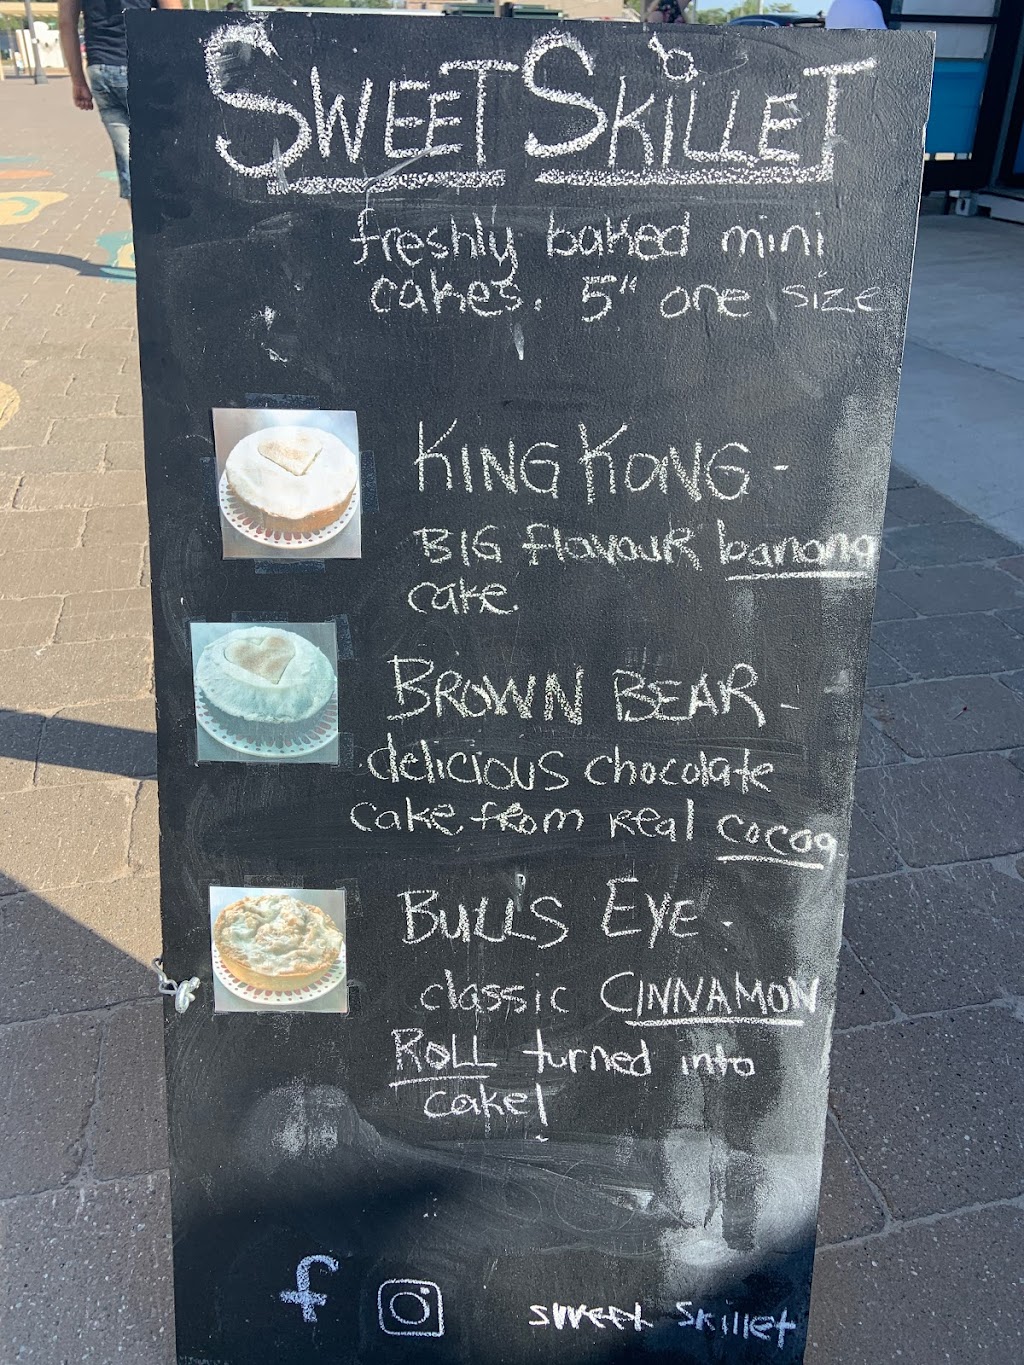 SWEET SKILLET
freshly baked mini
cakes. 5" one size
KING KONG -
BIG flavour banana
cake.
BROWN BEAR -
delicious chocolate
cake from real cocoa
BULL'S EYE -
classic CINNAMON
ROLL turned into
cake!
f sweet skillet